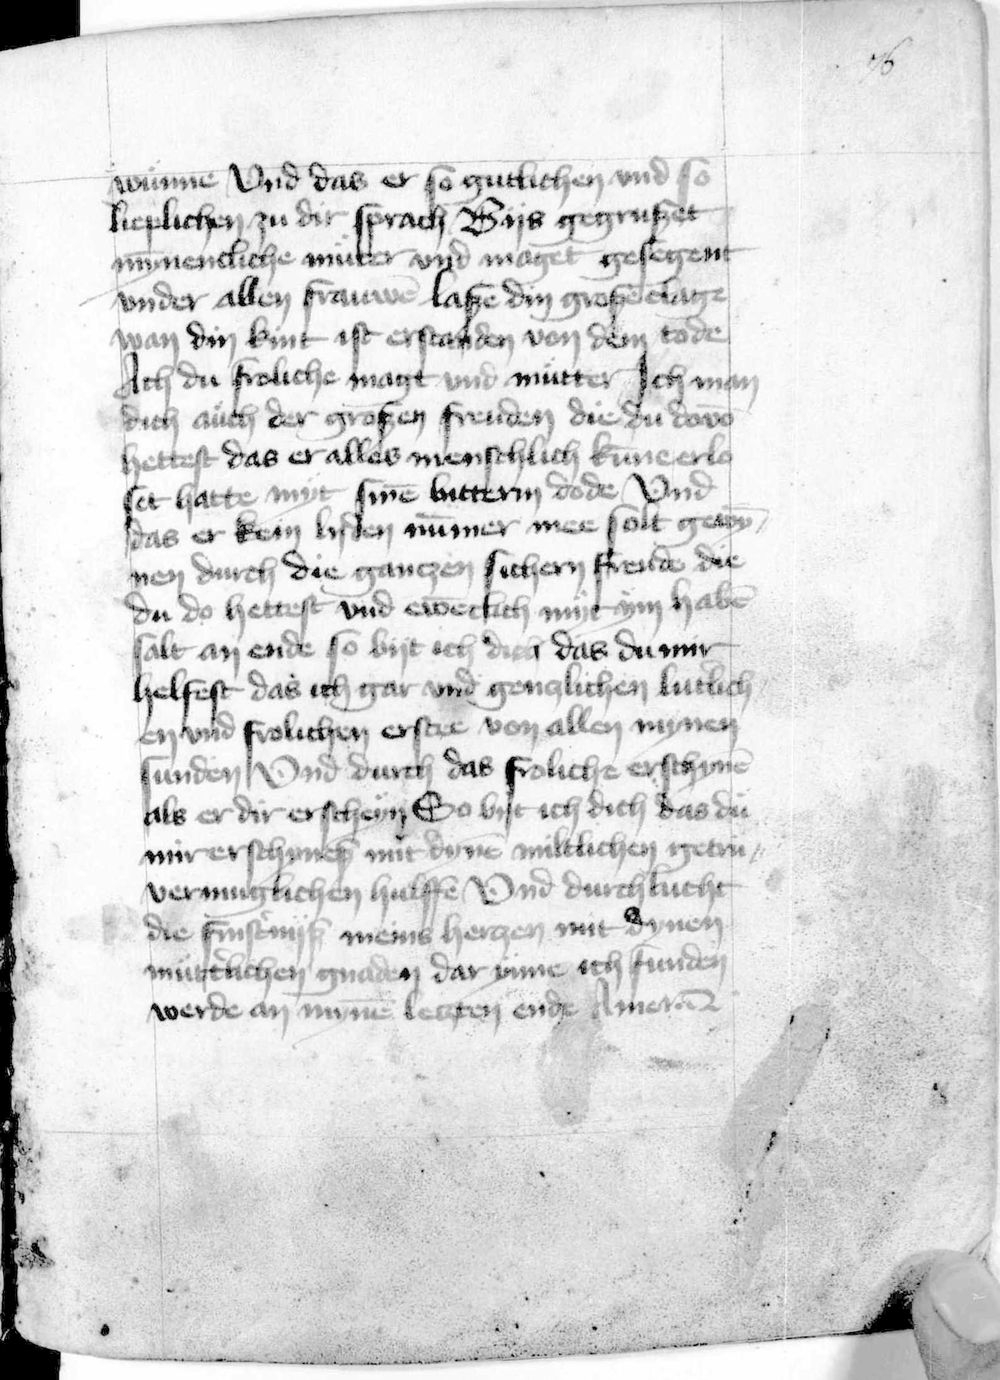 76
wünne Vnd das er so gutlichen vnd so
lieplichen zu dir sprach Biis gegrußet
mȳnencliche müter vnd maget gesegent
vnder allen frauwē laße din große clage
wan din kint ist erstanden von dem tode
Ach du froliche magt vnd mütter Ich man
dich aüch der großen freuden die du dovō
hettest das er alles menschlich kūne erlo
set hatte myt sinē bitterin dode Vnd
das er kein liden nūmer mee solt gewȳ//
nen durch die ganczen sichern freude die
du do hettest vnd ewēclich myt ym habē
salt an ende so biit ich dich das du mir
helfest das ich gar vnd genczlichen lutlich//
en vnd frolichen erstee von allen mynen
sunden Vnd durch das froliche erschynē
als er dir erscheyn So bijt ich dich das dü
mir erschynest mit dynē miltlichen getru//
vermuglichen hulffe Vnd durchlucht
die finsterniß meins herczen mit dynen
mütterlichen gnaden dar ynne ich funden
werde an mynē letzten ende Amen